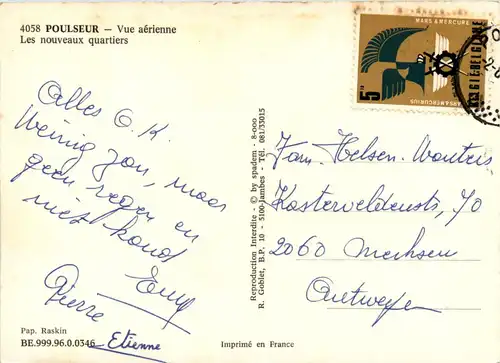 4058 POULSEUR — Vue aérienne
Les nouveaux quartiers
Alles O.K.
Weinig zon, maar
geen regen en
niet koud
Emy
Pierre
Etienne
Pap. Raskin
BE.999.96.0.0346
Imprimé en France
Reproduction Interdite - © by spadem - 8-000
R. Goblet, B.P. 10 - 5100-Jambes - Tél. 081/33015
MARS & MERCURE
5F
MARS & MERCURIUS
BELGIË-BELGIQUE
Fam. Helsen-Wouters
70
2060 Merksem
Antwerpen